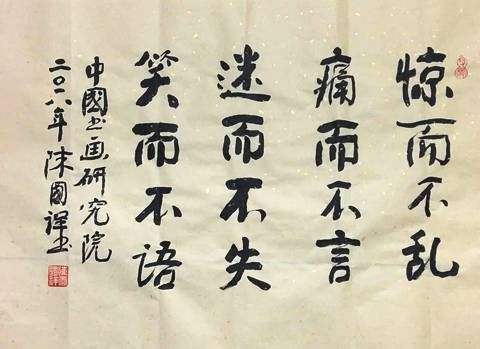 惊而不乱
痛而不言
迷而不失
笑而不语
中國书画研究院
二〇一八年陈國祥书